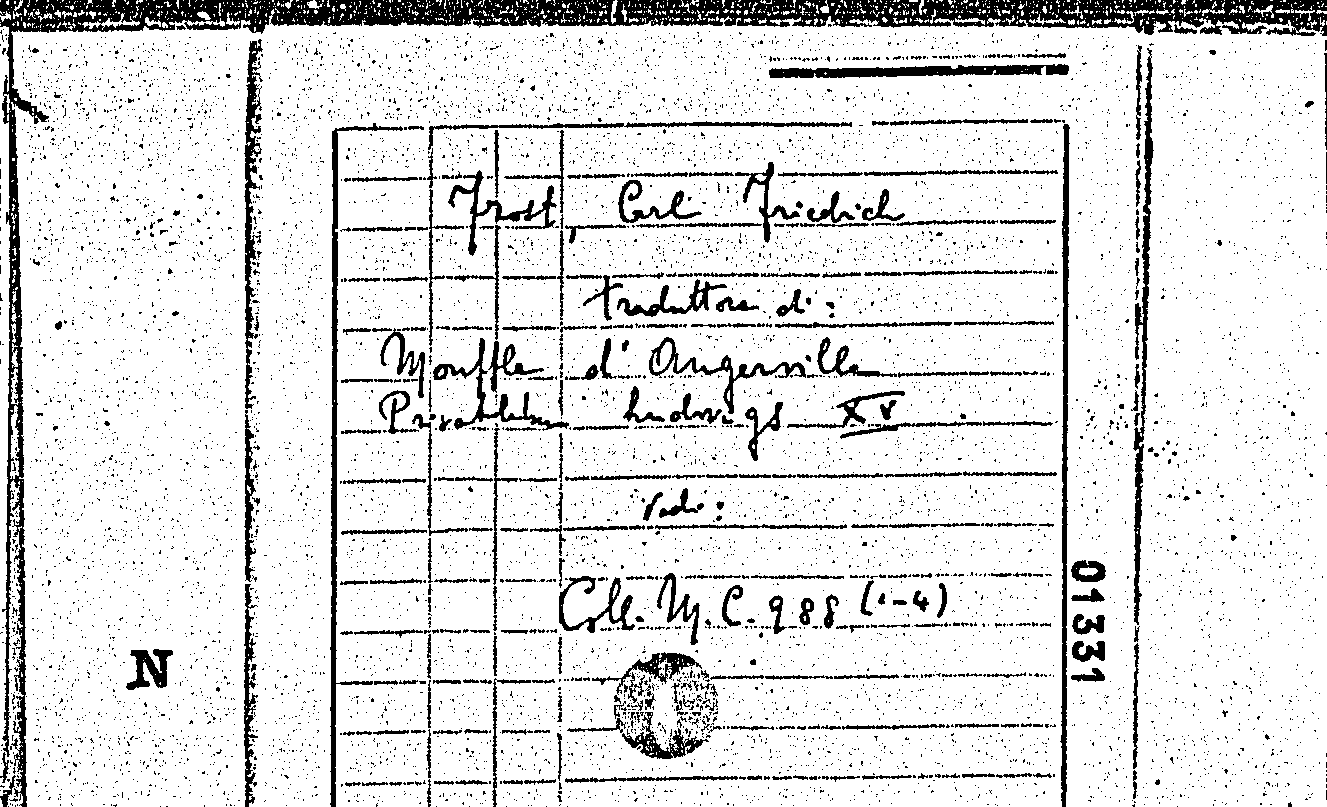 Frost, Carl Friedrich
traduttore di:
Mouffle d'Angerville
Privatleben Ludwigs XV.
vedi:
Coll. M. C. 988 (1-4)
01331
N